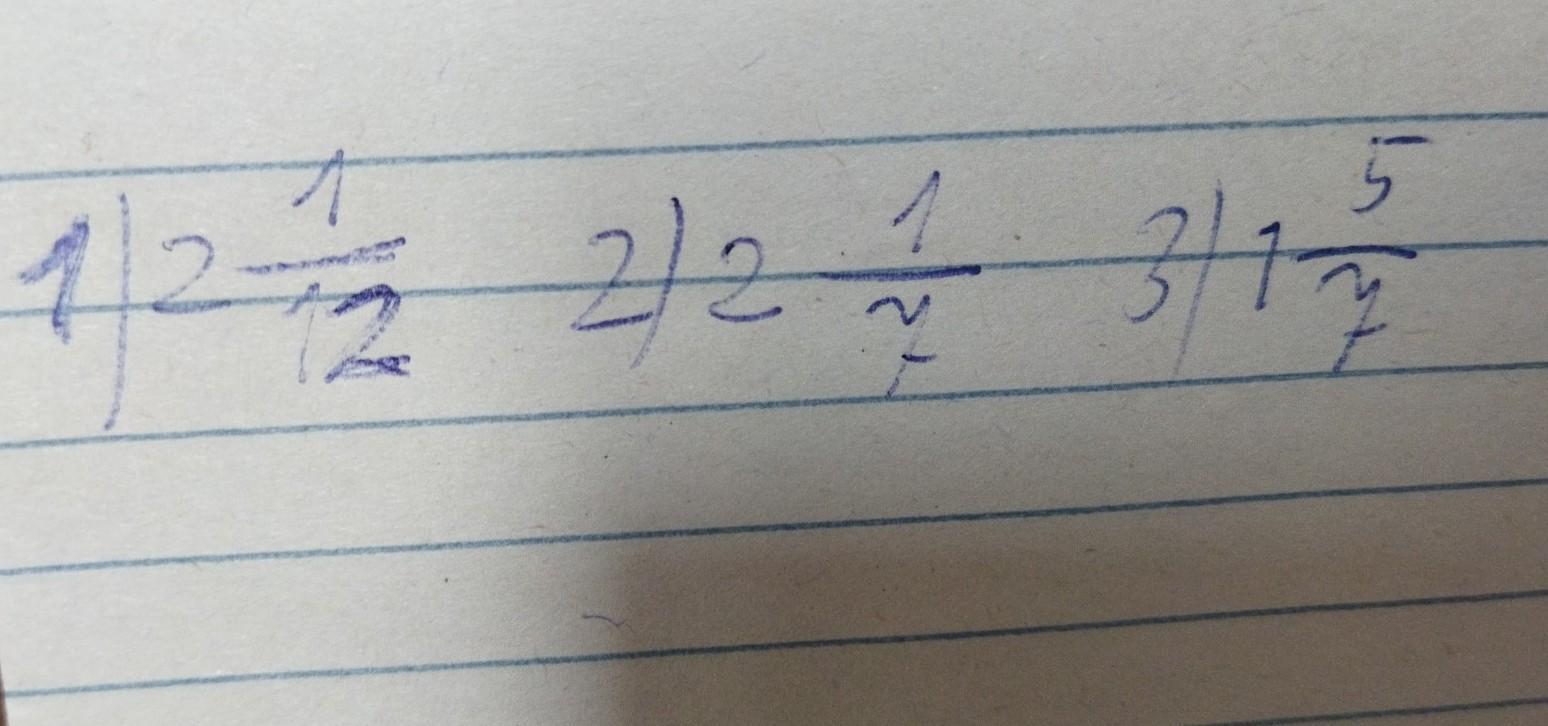 1) 2 1/12 2) 2 1/7 3) 1 5/7